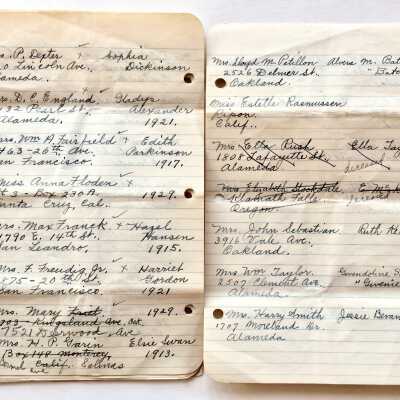 s. P. Dexter + Sophia
0 Lincoln Ave., Dickinson
lameda.
rs. D. C. England ✓ Gladys
32 Pearl St. Alexander
Alameda. 1921.
rs. Wm A. Fairfield + Edith
763-26th Ave. Parkinson
an Francisco. 1917.
iss Anna Floden +
x 2 - Box 230A 1929.
anta Cruz, Cal.
rs. Max Franck + Hazel
790 E. 14th St. Hansen
an Leandro. 1915.
rs. F. Freudig, Jr. + Harriet
875-20th Gordon
San Francisco. 1921
Mrs. Mary 1929.
Kingsland Ave. Oak
7521 Ave
Mrs. H. P. Garin Elsie Swan
Box 148 Monterey 1913.
Calif. Salinas
Mrs. Lloyd M. Petillon Alvera M. Bat
2526 Delmer St. Bato
Oakland.
Miss Estelle Rasmussen
Ripon,
Calif.
Mrs. Etta Rush Ella Tay
1808 Lafayette St. deceased
Alameda
Mrs. Elizabeth Stockdale E. McK
Klamath Falls,
Oregon.
Mrs. John Sebastian Ruth Ke
3916 Vale Ave.
Oakland.
Mrs Wm Taylor. Gwendoline S
2507 Clement Ave. "Gwenie
Alameda
Mrs. Harry Smith Jessie Bevan
1707 Moreland Dr.
Alameda